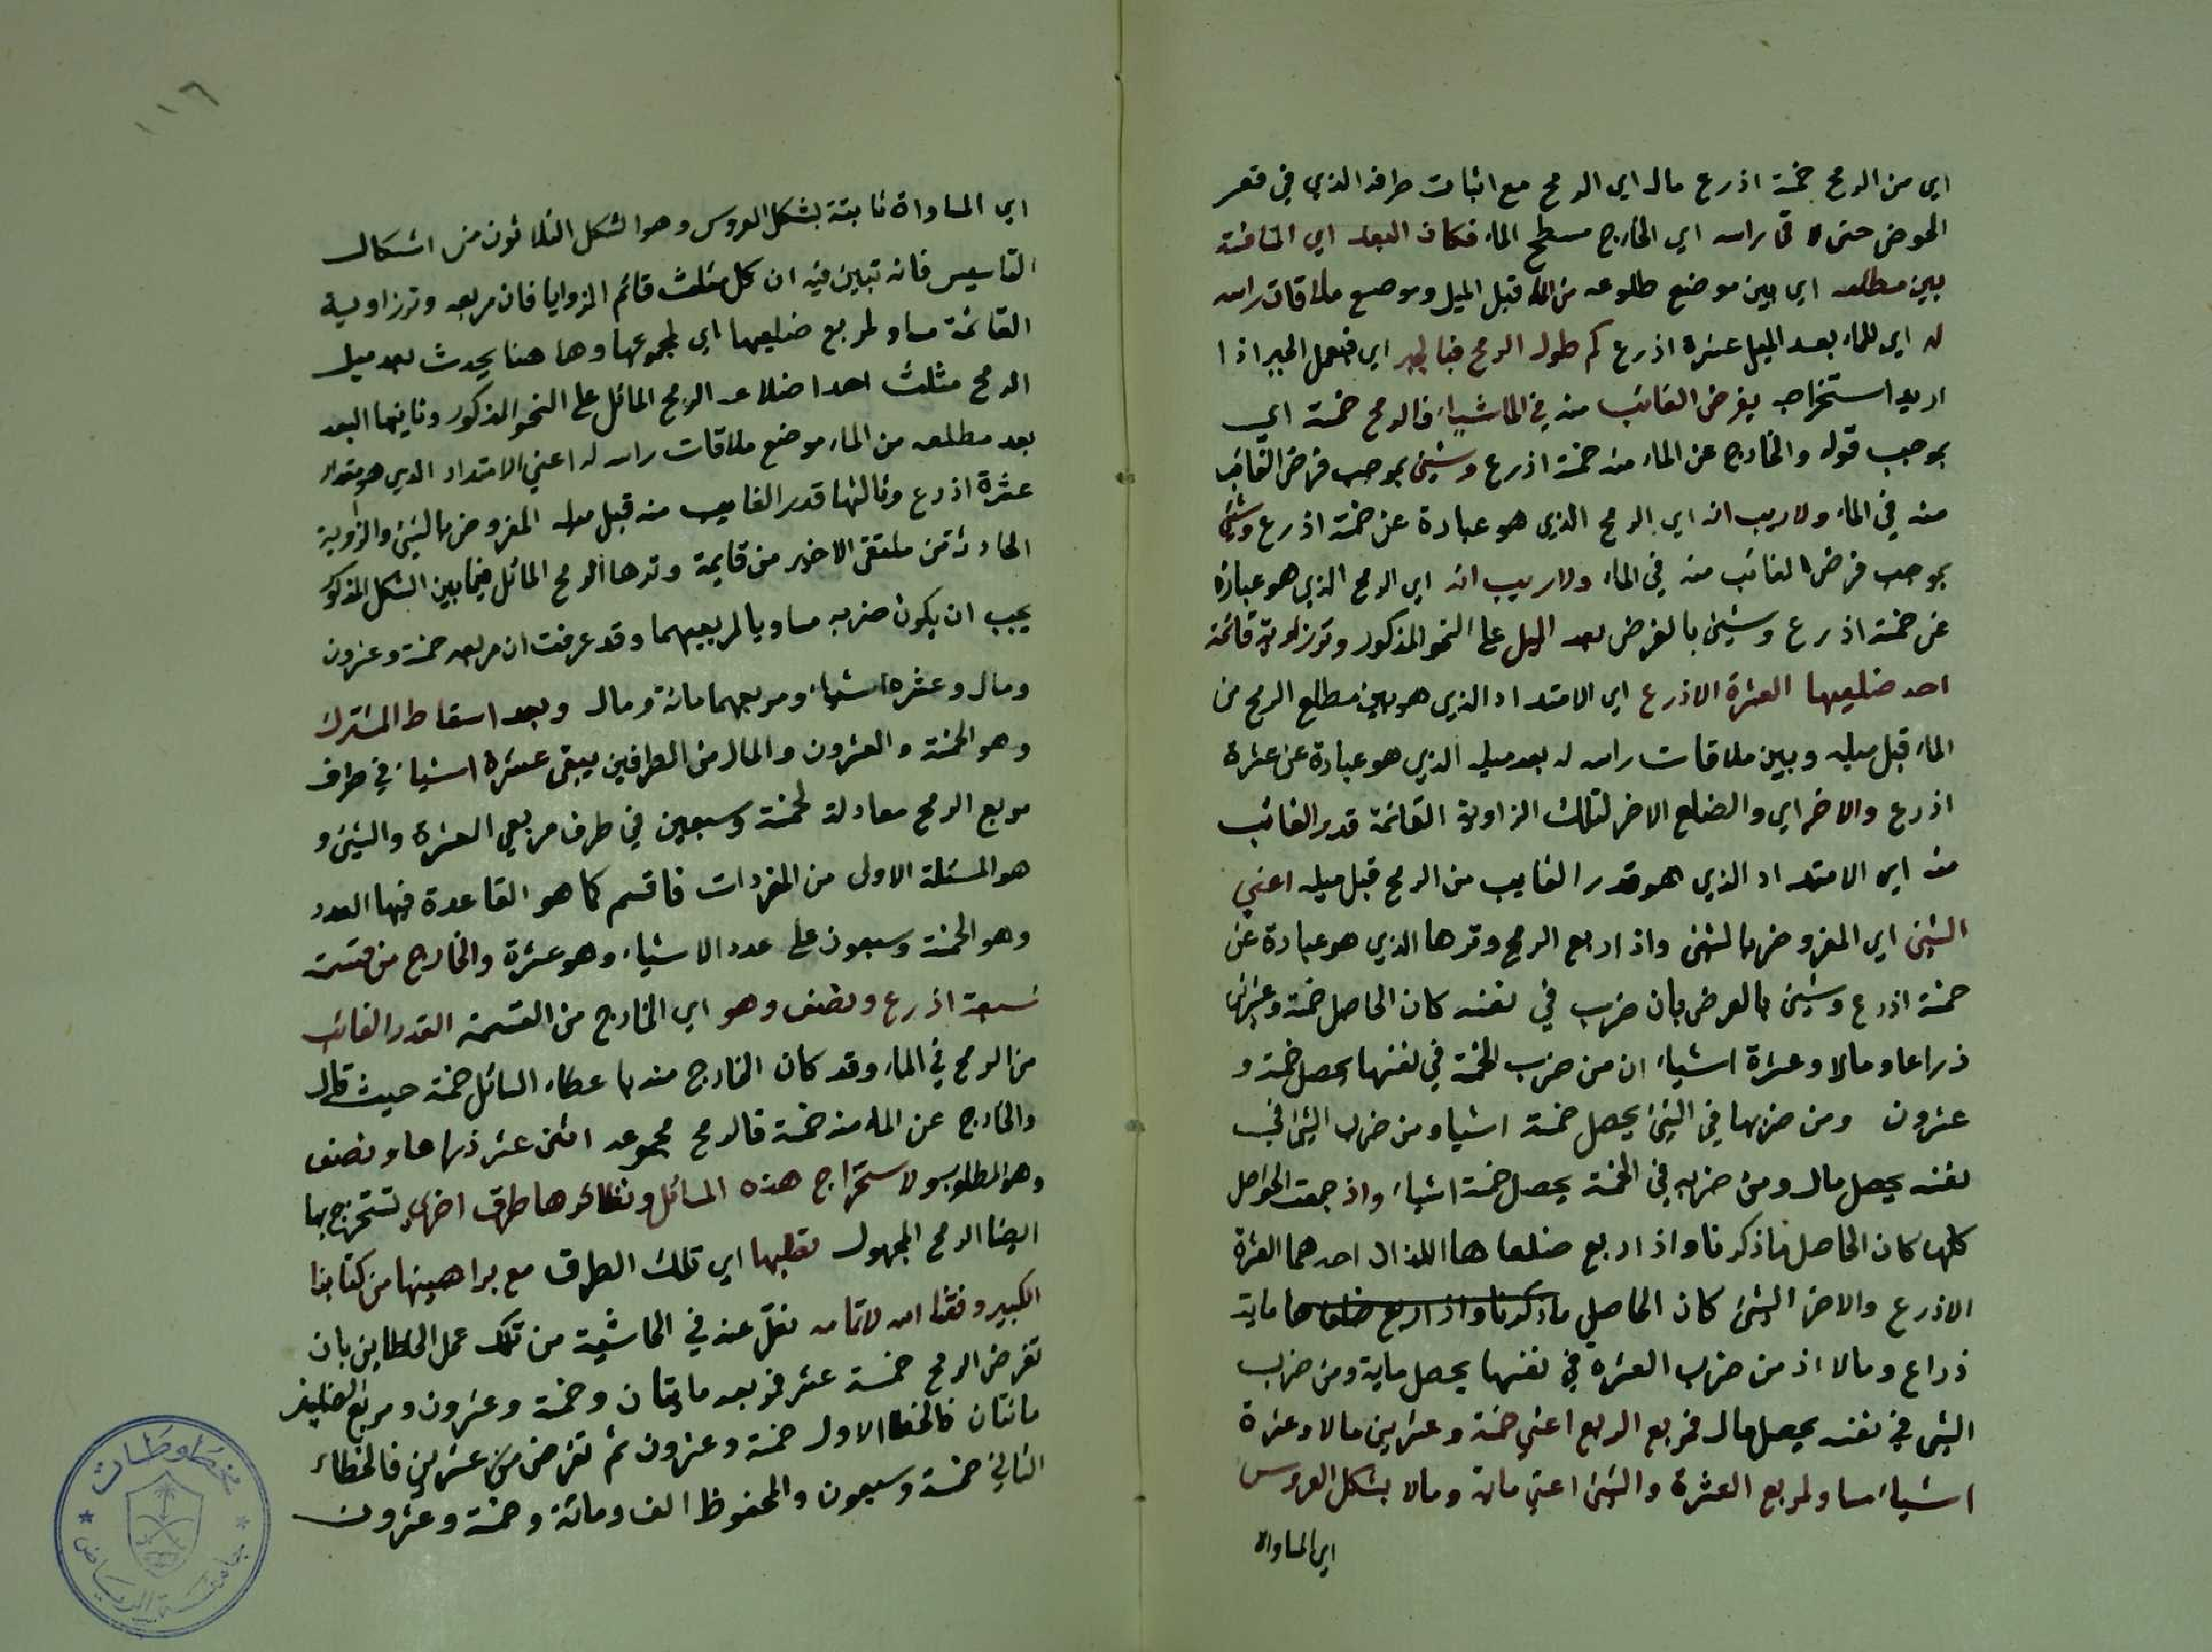 اي من الرمح خمسة اذرع مال اي الرمح مع اثبات طرفه الذي في قعر
الحوض حتى لاقى راسه اي الخارج سطح الماء فكان البعد اي المسافة
بين مطلعه اي بين موضع طلوعه من الماء قبل الميل وموضع ملاقات راسه
له اي للماء بعد الميل عشرة اذرع كم طول الرمح فبالجبر اي فبعمل الجبر اذا
اريد استخراجه يفرض الغائب منه في الماء شيئا فالرمح خمسة اي
بموجب قوله والخارج عن الماء منه خمسة اذرع وشيئ بموجب فرض الغائب
منه في الماء ولاريب انه اي الرمح الذي هو عبارة عن خمسة اذرع وشيئ
بموجب فرض الغائب منه في الماء ولاريب انه اي الرمح الذي هو عبارة
عن خمسة اذرع وشيئ بالفرض بعد الميل على النحو المذكور وتر زاوية قائمة
احد ضلعيها العشرة الاذرع اي الامتداد الذي هو بين مطلع الرمح من
الماء قبل ميله وبين ملاقات راسه له بعد ميله الذي هو عبارة عن عشرة
اذرع والاخر اي والضلع الاخر لتلك الزاوية القائمة قدر الغائب
منه اي الامتداد الذي هو قدر الغايب من الرمح قبل ميله اعني
الشيئ اي المفروض بالشيئ واذا ربع الرمح وترها الذي هو عبارة عن
خمسة اذرع وشيئ بالفرض بان ضرب في نفسه كان الحاصل خمسة وعشرين
ذراعا ومالا وعشرة اشياء ان من ضرب الخمسة في نفسها يحصل خمسة و
عشرون ومن ضربها في الشيئ يحصل خمسة اشيا ومن ضرب الشيئ في
نفسه يحصل مال ومن ضربه في الخمسة يحصل خمسة اشياء واذ جمعت الحواصل
كلها كان الحاصل ماذكرنا واذا ربع ضلعاها اللذان احدهما العشرة
الاذرع والاخر الشيئ كان الحاصل ماذكرنا واذا ربع ضلعاها ماية
ذراع ومالا اذ من ضرب العشرة في نفسها يحصل ماية ومن ضرب
الشيئ في نفسه يحصل مال فمربع الرمح اعني خمسة وعشرين مالا وعشرة
اشياء مساو لمربع العشرة والشيئ اعني مائة ومالا بشكل العروس
اي المساواة
١١٦
اي المساواة ثابتة بشكل العروس وهو الشكل الثلاثون من اشكال
التاسيس فانه تبين فيه ان كل مثلث قائم الزوايا فان مربعه وتر زاوية
القائمة مساو لمربع ضلعيها اي لمجموعها وها هنا يحدث بعد ميل
الرمح مثلث احد اضلاعه الرمح المائل على النحو المذكور وثانيها البعد
بعد مطلعه من الماء موضع ملاقات راسه له اعني الامتداد الذي هو مقدار
عشرة اذرع وثالثها قدر الغايب منه قبل ميله المفروض بالشيئ والزاوية
الحادثة من ملتقى الاخير من قايمة وترها الرمح المائل فيما بين الشكل المذكور
يجب ان يكون ضربه مساويا لمربعيهما وقد عرفت ان مربعه خمسة وعشرون
ومال وعشرة اشياء ومربعهما مائة ومال وبعد اسقاط المشترك
وهو الخمسة والعشرون والمال من الطرفين يبقى عشرة اشياء في طرف
مربع الرمح معادلة لخمسة وسبعين في طرف مربعي العشرة والشيئ و
هو المسئلة الاولى من المفردات فاقسم كما هو القاعدة فيها العدد
وهو الخمسة وسبعون على عدد الاشياء وهو عشرة والخارج من قسمته
سبعة اذرع ونصف وهو اي الخارج من القسمة القدر الغائب
من الرمح في الماء وقد كان الخارج منه باعطاء السائل خمسة حيث قال
والخارج عن الماء منه خمسة فالرمح مجموعه اثنى عشر ذراعا ونصف
وهو المطلوب ولاستخراج هذه المسائل ونظائرها طرق اخرى تستخرج بها
ايضا الرمح المجهول تطلبها اي تلك الطرق مع براهينها من كتابنا
الكبير وفقنا الله لاتمامه نقل عنه في الحاشية من تلك عمل الخطاين بان
تفرض الرمح خمسة عشر فمربعه مايتان وخمسة وعشرون ومربع الضلعين
مائتان فالخطا الاول خمسة وعشرون ثم تفرض من عشرين فالخطاء
الثاني خمسة وسبعون والمحفوظ الف ومائة وخمسة وعشرون
مخطوطات
جامعة الرياض